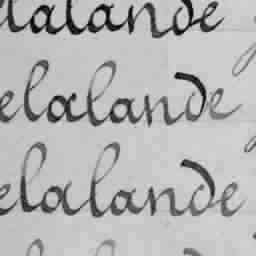 elalande
elalande
elalande